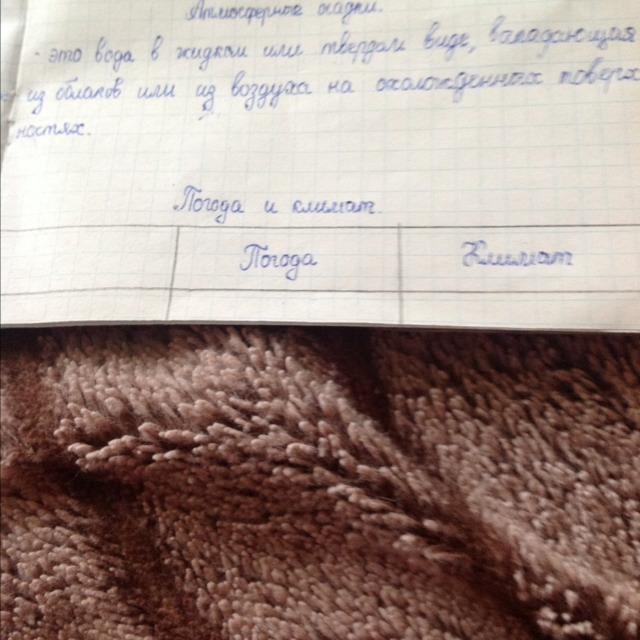 Атмосферные осадки.
- это вода в жидком или твердом виде, выпадающая
из облаков или из воздуха на охлажденных поверх
ностях.
Погода и климат.
Погода
Климат